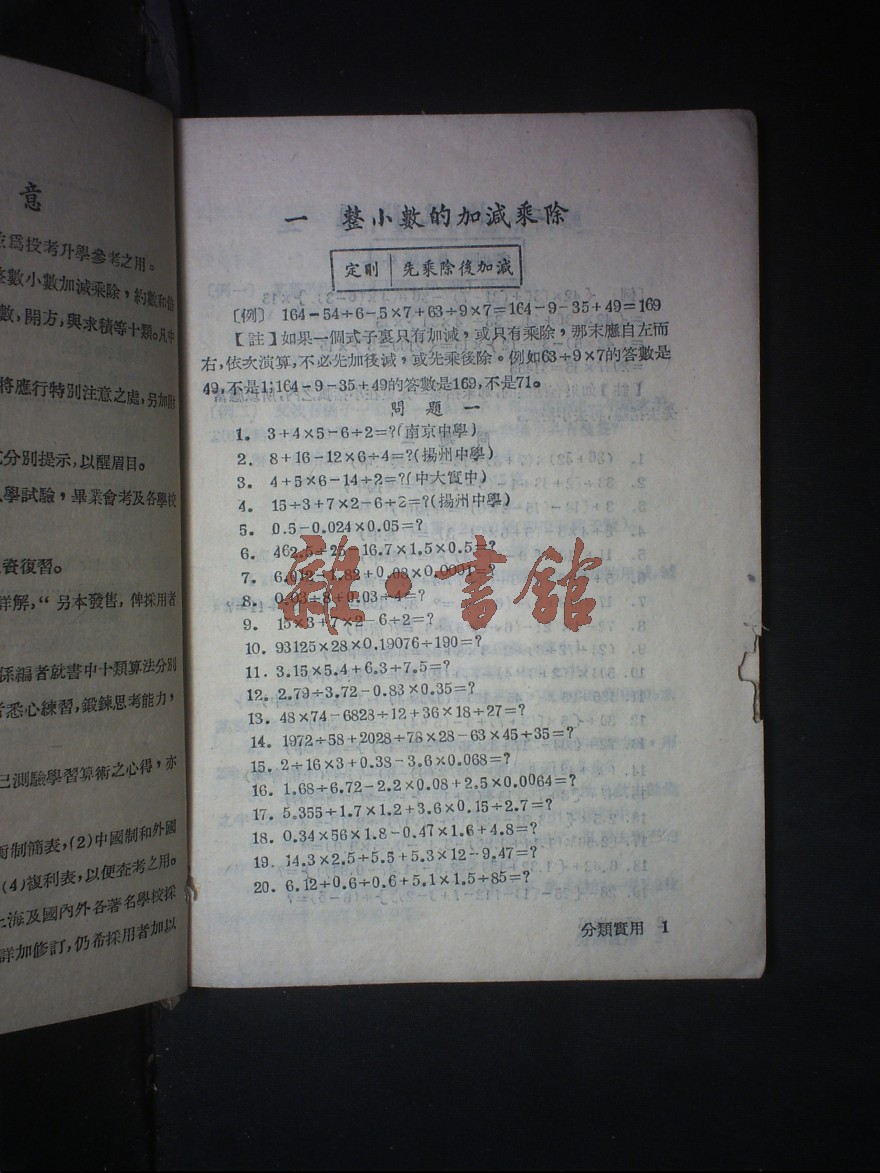 意
並爲投考升學參考之用。
整數小數加減乘除，約數和倍
數，開方，與求積等十類。凡中
將應行特別注意之處，另加附
分別提示，以醒眉目。
學試驗，畢業會考及各學校
資復習。
詳解，“另本發售，俾採用者
係編者就書中十類算法分別
者悉心練習，鍛鍊思考能力，
己測驗學習算術之心得，亦
衡制簡表，(2)中國制和外國
(4)複利表，以便查考之用。
上海及國內外各著名學校採
詳加修訂，仍希採用者加以
一 整小數的加減乘除
定則 先乘除後加減
〔例〕 164－54÷6－5×7＋63÷9×7＝164－9－35＋49＝169
【註】如果一個式子裏只有加減，或只有乘除，那末應自左而
右，依次演算，不必先加後減，或先乘後除。例如63÷9×7的答數是
49，不是1；164－9－35＋49的答數是169，不是71。
問題一
1. 3＋4×5－6÷2＝?(南京中學)
2. 8＋16－12×6÷4＝?(揚州中學)
3. 4＋5×6－14÷2＝?(中大實中)
4. 15÷3＋7×2－6÷2＝?(揚州中學)
5. 0.5－0.024×0.05＝?
6. 462.5÷25－16.7×1.5×0.5＝?
7. 6.012÷1.82＋0.03×0.0001＝?
8. 0.03÷8＋0.03÷4＝?
9. 15×3＋7×2－6÷2＝?
10. 93125×28×0.19076÷190＝?
11. 3.15×5.4＋6.3÷7.5＝?
12. 2.79÷3.72－0.83×0.35＝?
13. 48×74－6828÷12＋36×18÷27＝?
14. 1972÷58＋2028÷78×28－63×45÷35＝?
15. 2÷16×3＋0.38－3.6×0.068＝?
16. 1.68÷6.72－2.2×0.08＋2.5×0.0064＝?
17. 5.355÷1.7×1.2＋3.6×0.15÷2.7＝?
18. 0.34×56×1.8－0.47×1.6÷4.8＝?
19. 14.3×2.5÷5.5＋5.3×12－9.47＝?
20. 6.12÷0.6÷0.6＋5.1×1.5÷85＝?
分類實用 1
雜·書館